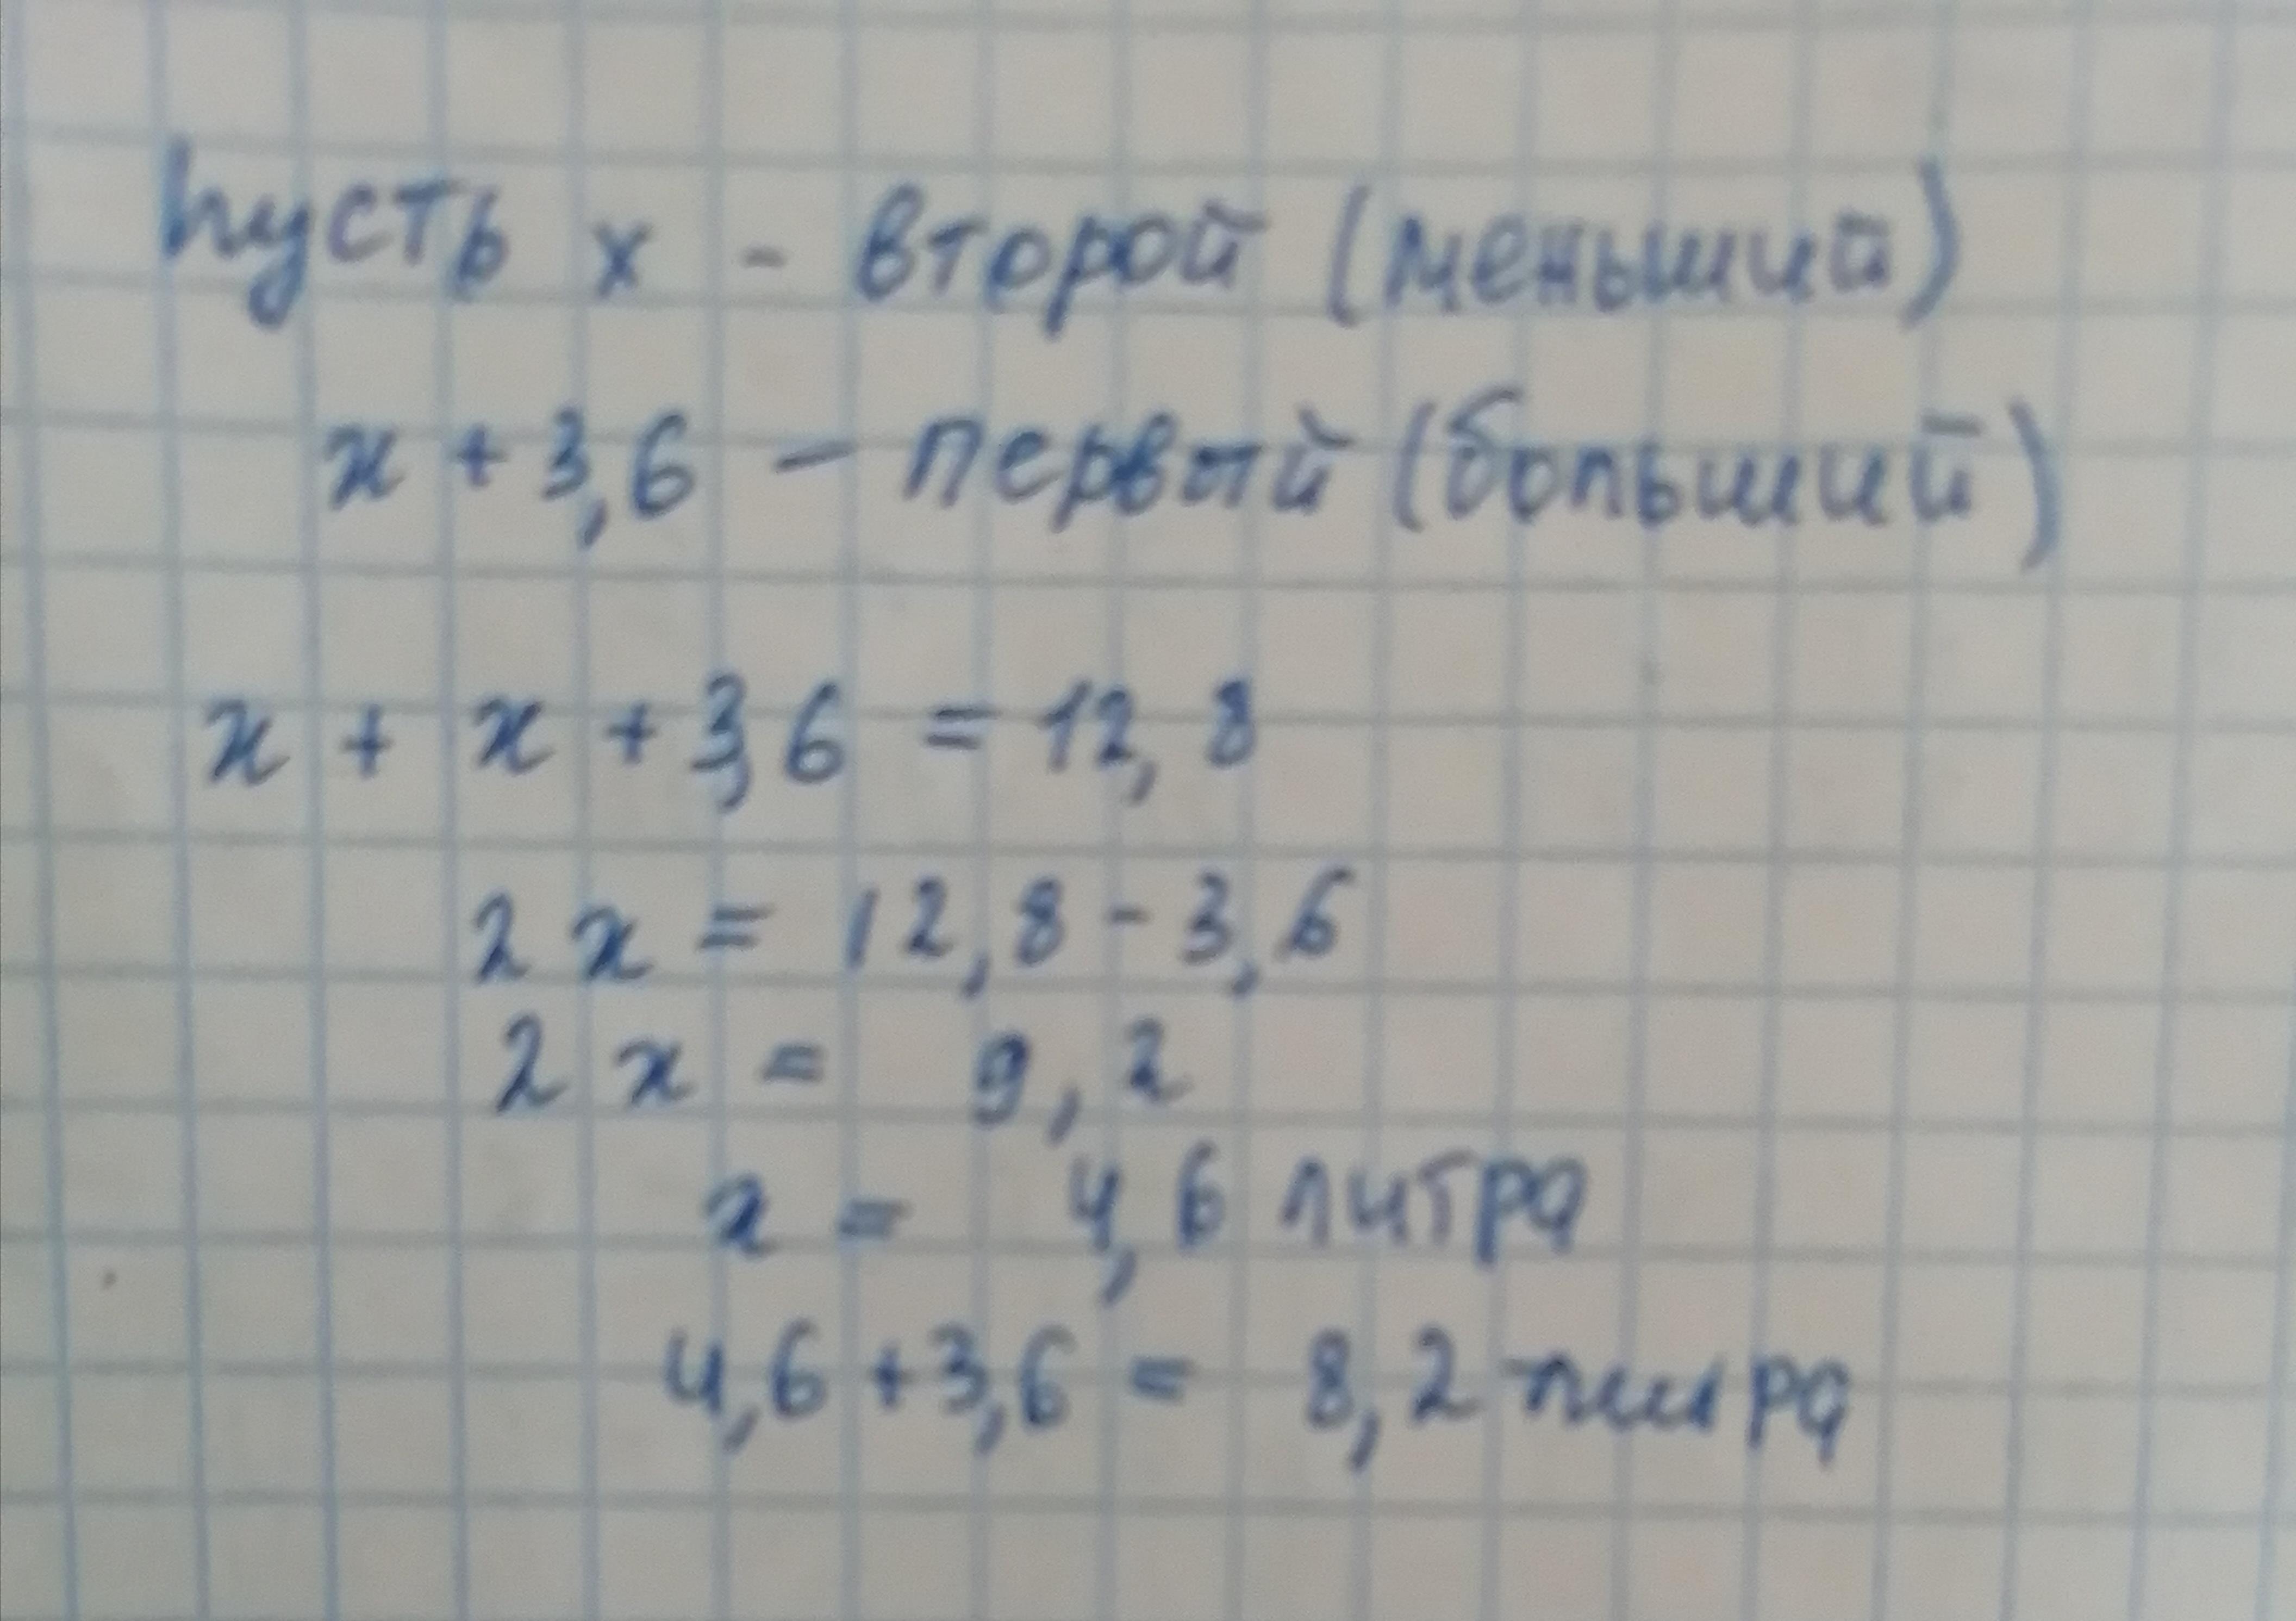 пусть x - второй (меньший)
x + 3,6 – первый (больший)
x + x + 3,6 = 12,8
2x = 12,8 - 3,6
2x = 9,2
x = 4,6 литра
4,6 + 3,6 = 8,2 литра